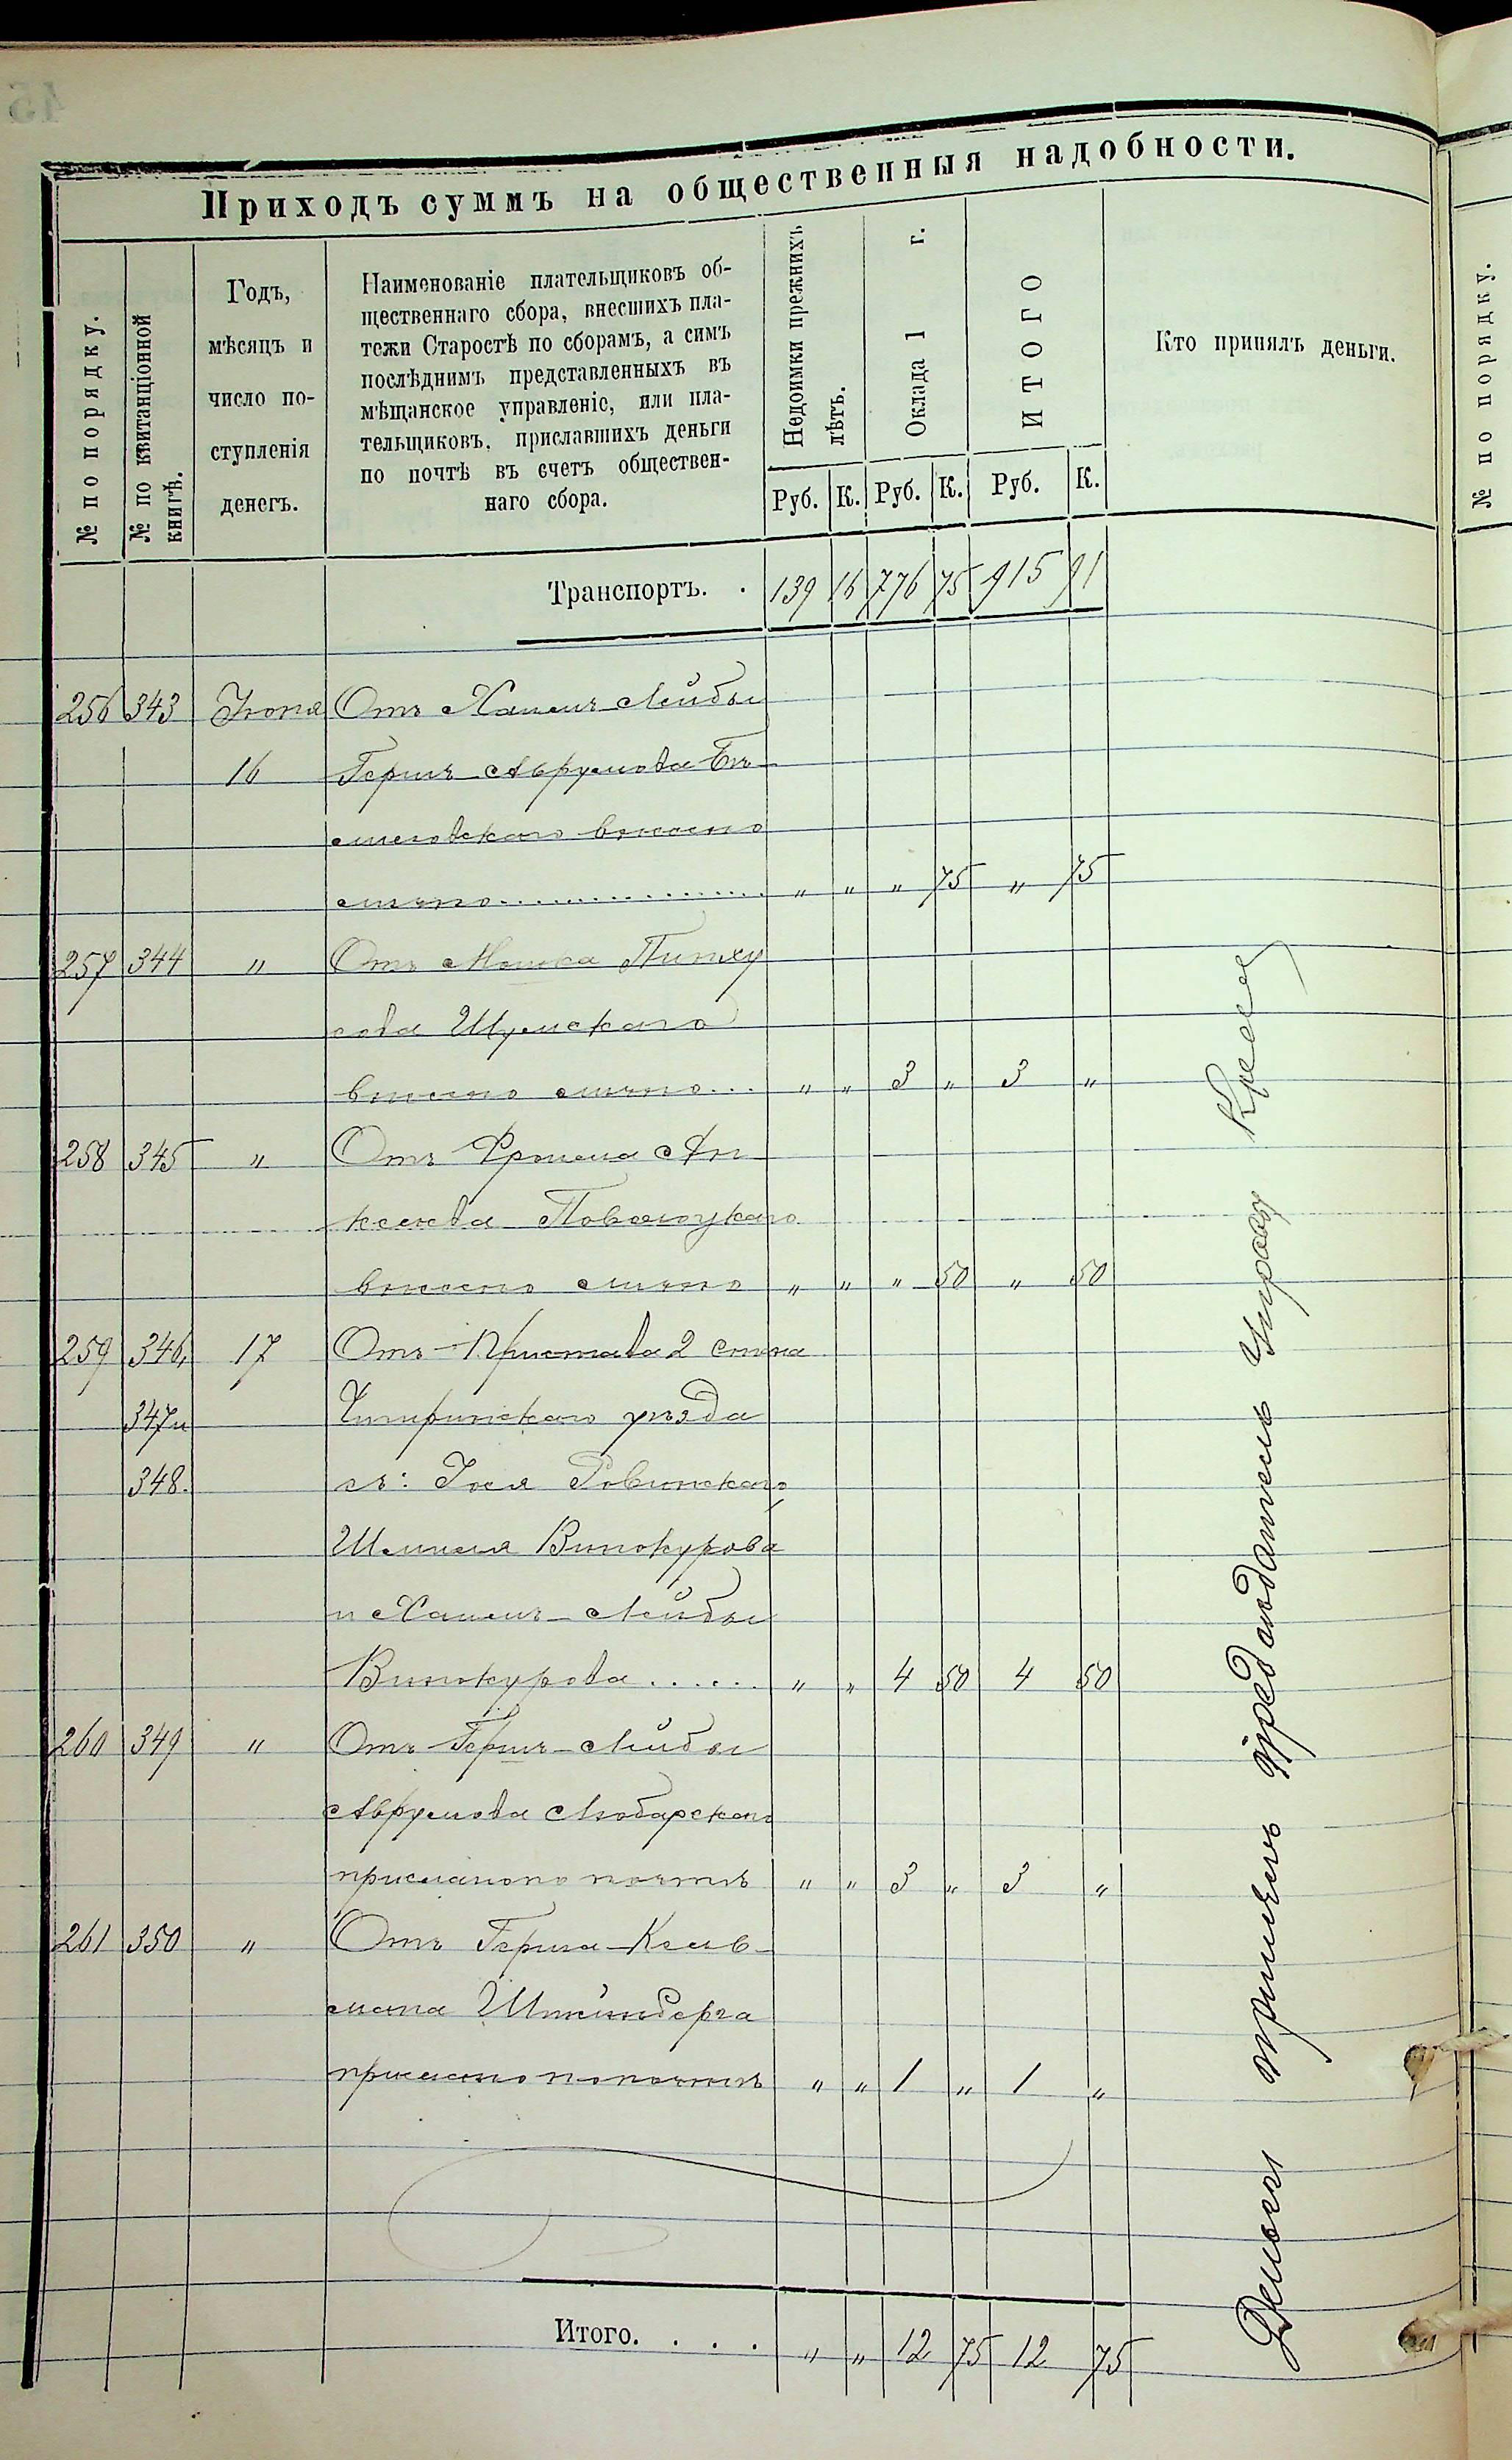 Приходъ суммъ на общественныя надобности.
№ по порядку.
№ по квитанціонной книгѣ.
Годъ,
мѣсяцъ и
число по-
ступленія
денегъ.
Наименованіе плательщиковъ об-
щественнаго сбора, внесшихъ пла-
тежи Старостѣ по сборамъ, а симъ
послѣднимъ представленныхъ въ
мѣщанское управленіе, или пла-
тельщиковъ, приславшихъ деньги
по почтѣ въ счетъ обществен-
наго сбора.
Недоимки прежнихъ лѣтъ.
Оклада 1 г.
ИТОГО
Кто принялъ деньги.
Руб. К. Руб. К. Руб. К.
Транспортъ. . 139 16 776 75 915 91
256 343 Іюня Отъ Хаимъ-Лейбы
16 Герш-Аврумова
внесено
лично " " " 75 " 75
257 344 " Отъ Мошка Пинху
сова Шумскаго
внесено лично... " " 3 " 3 "
258 345 " Отъ Фроима Ан-
Паволоцкаго
внесено лично " " " 50 " 50
259 346, 17 Отъ Пристава 2 стана
347 и Чигиринскаго уѣзда
348. съ: Іося Ровинскаго
Шмиля Винокурова
и Хаимъ-Лейбы
Винокурова...... " " 4 50 4 50
260 349 " Отъ Гершъ-Лейбы
Аврумова Любарскаго
прислано по почтѣ " " 3 " 3 "
261 350 " Отъ Герша-Кель-
мана Штейнберга
прислано по почтѣ " " 1 " 1 "
Итого. . . . " " 12 75 12 75
Деньги принялъ предсѣдатель Управы
№ по порядку.